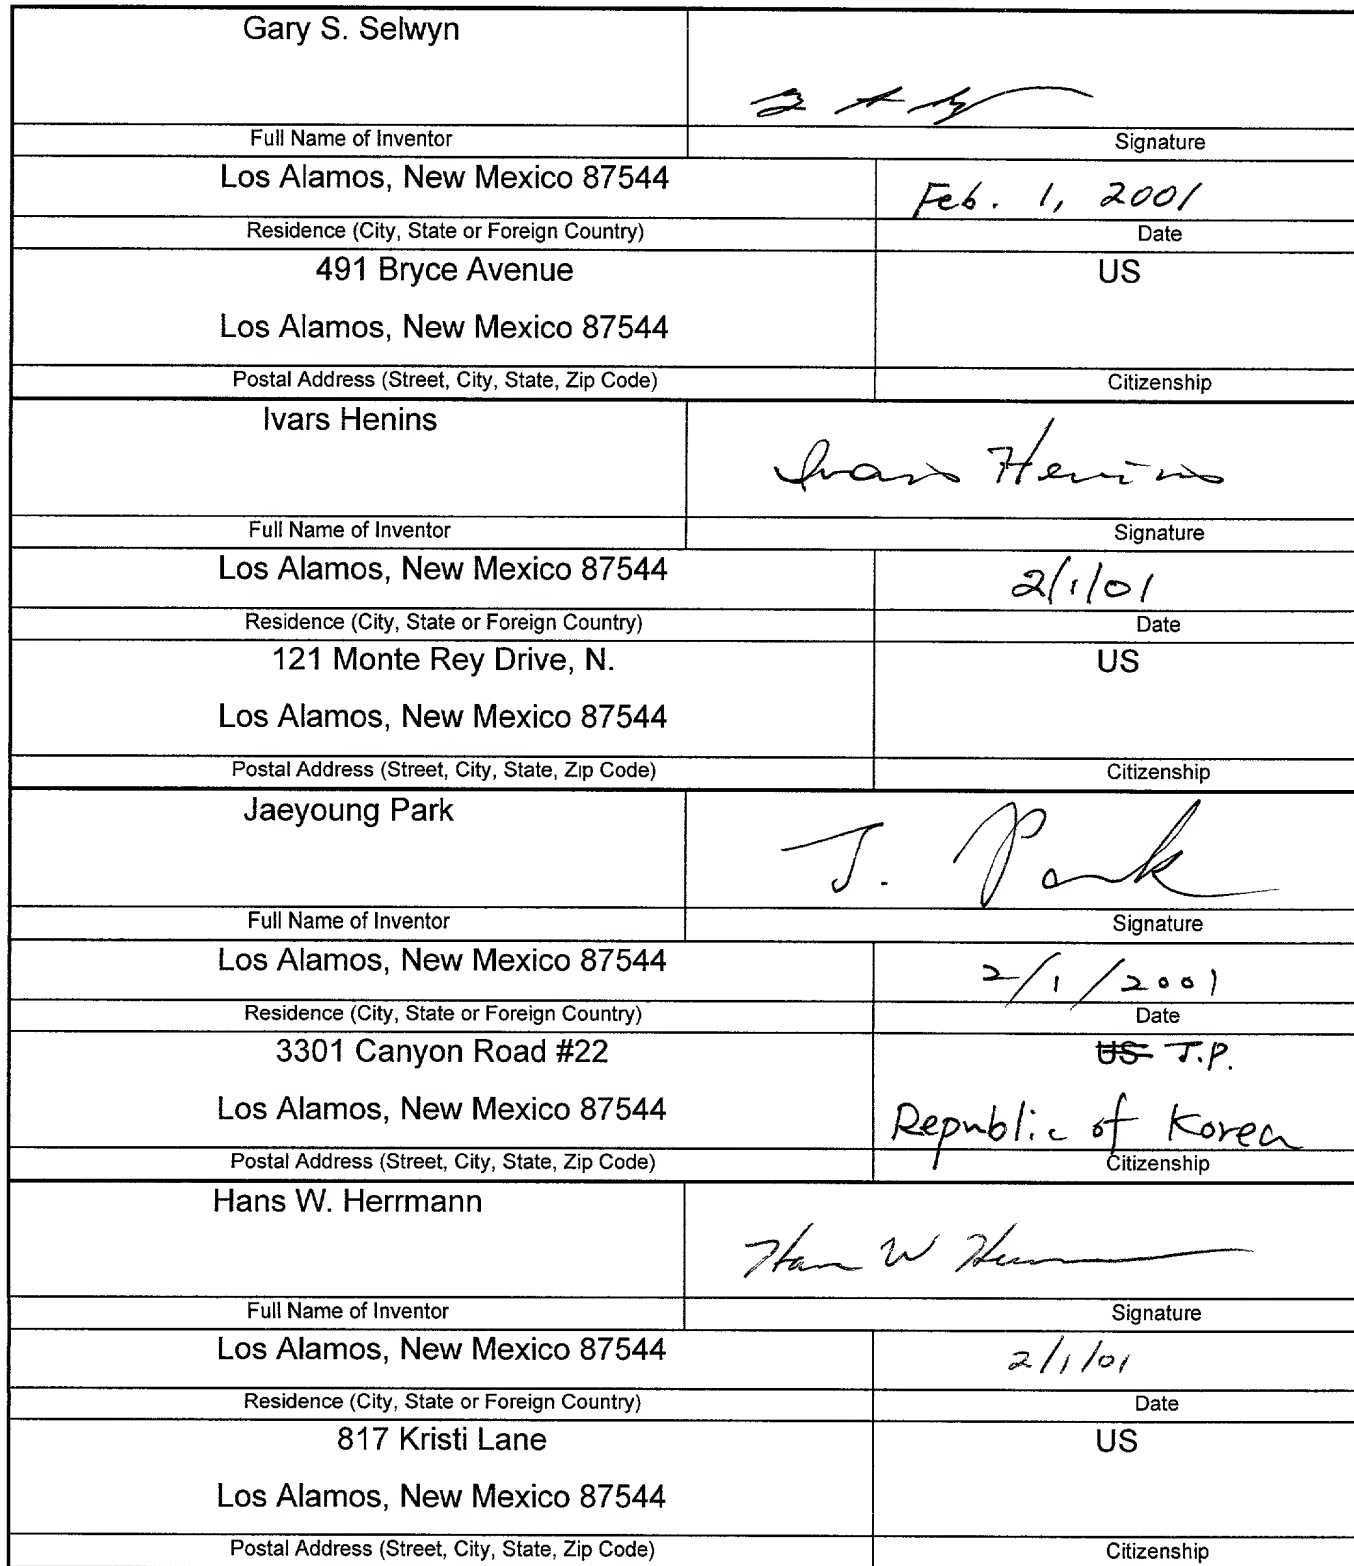 Gary S. Selwyn
Full Name of Inventor Signature
Los Alamos, New Mexico 87544 Feb. 1, 2001
Residence (City, State or Foreign Country) Date
491 Bryce Avenue US
Los Alamos, New Mexico 87544
Postal Address (Street, City, State, Zip Code) Citizenship
Ivars Henins
Ivars Henins
Full Name of Inventor Signature
Los Alamos, New Mexico 87544 2/1/01
Residence (City, State or Foreign Country) Date
121 Monte Rey Drive, N. US
Los Alamos, New Mexico 87544
Postal Address (Street, City, State, Zip Code) Citizenship
Jaeyoung Park
J. Park
Full Name of Inventor Signature
Los Alamos, New Mexico 87544 2/1/2001
Residence (City, State or Foreign Country) Date
3301 Canyon Road #22 US J.P.
Los Alamos, New Mexico 87544 Republic of Korea
Postal Address (Street, City, State, Zip Code) Citizenship
Hans W. Herrmann
Hans W Herrmann
Full Name of Inventor Signature
Los Alamos, New Mexico 87544 2/1/01
Residence (City, State or Foreign Country) Date
817 Kristi Lane US
Los Alamos, New Mexico 87544
Postal Address (Street, City, State, Zip Code) Citizenship